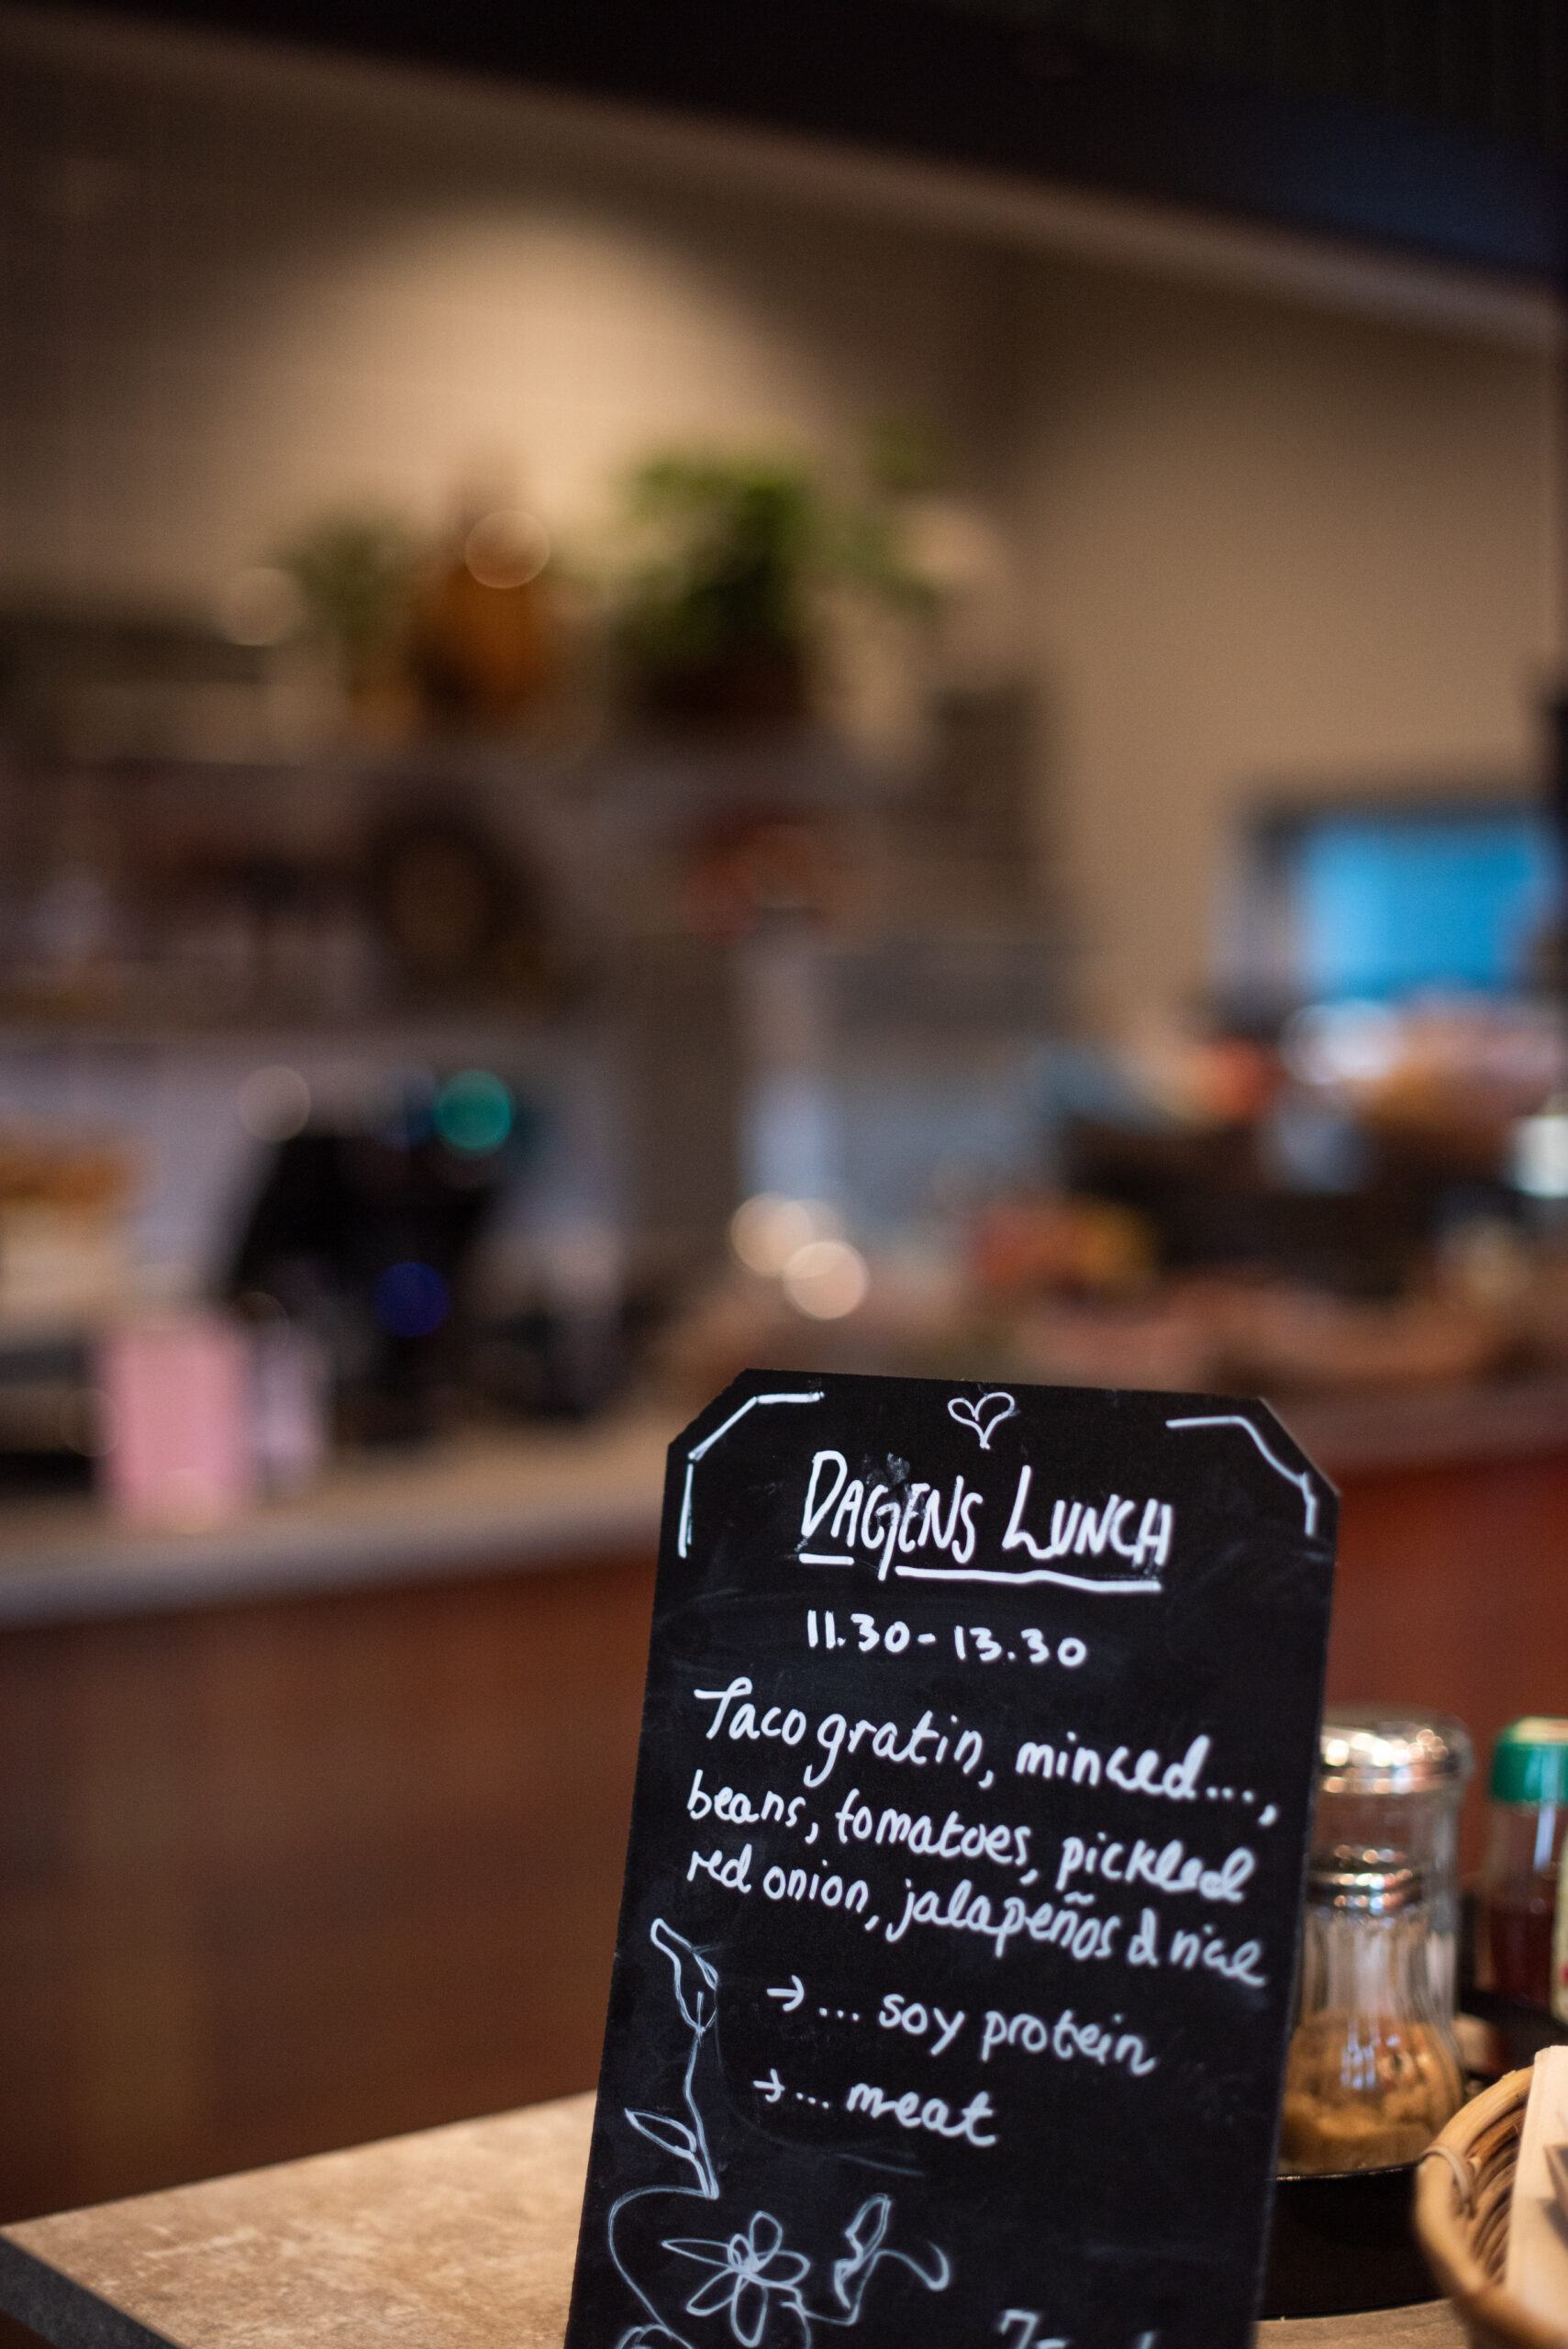 DAGENS LUNCH
11.30 - 13.30
Taco gratin, minced...,
beans, tomatoes, pickled
red onion, jalapeños & rice
→ ... soy protein
→ ... meat